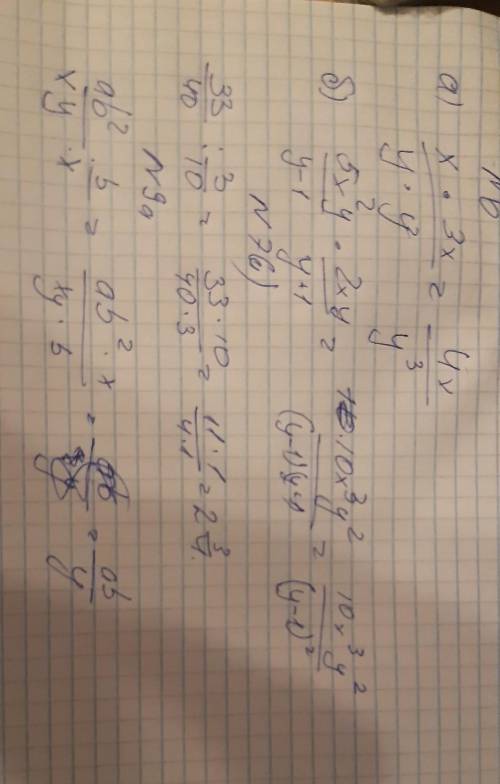 N 6
а) x · 3x / y · y² = 4x / y³
б) 5x²y / y-1 · 2xy / y+1 = 10x³y² / (y-1)(y+1) = 10x³y² / (y-1)²
N 7б)
33/40 : 3/10 = 33·10 / 40·3 = 11·1 / 4·1 = 2 3/4.
N 9а
ab² / xy : b / x = ab² · x / xy · b = = ab / y